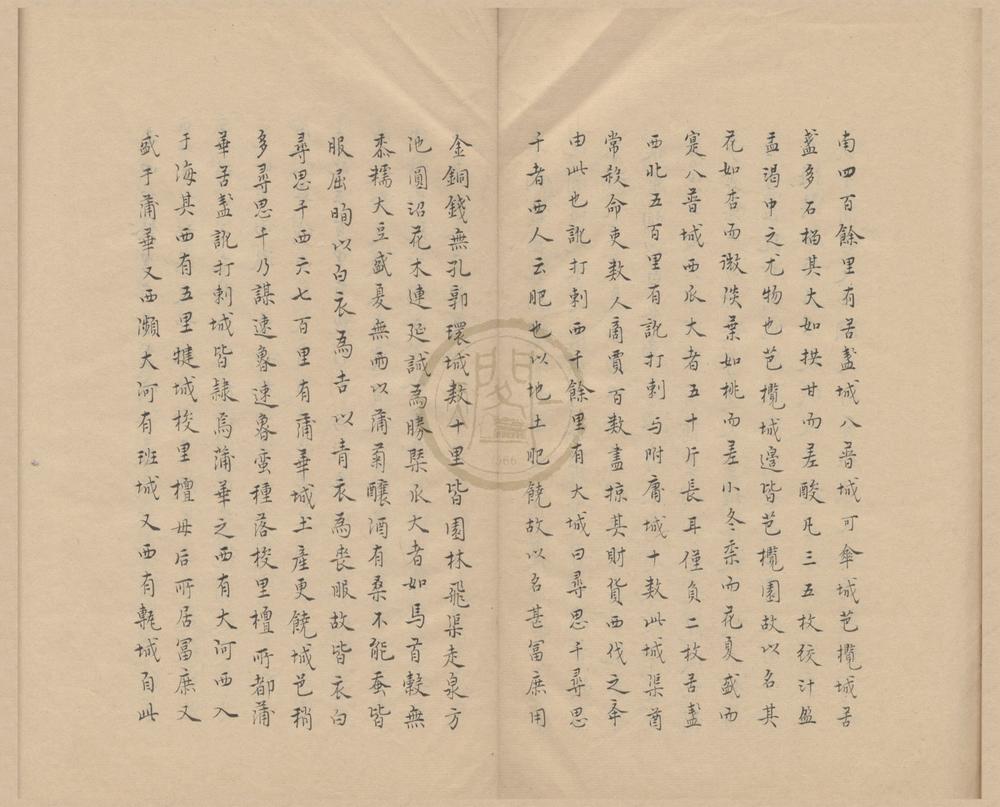 南四百餘里有苦盞城八普城可傘城芭欖城苦
盞多石榴其大如拱甘而差酸凡三五枚絞汁盈
盂渴中之尤物也芭欖城邊皆芭欖園故以名其
花如杏而微淡葉如桃而差小冬季而花夏盛而
寔八普城西瓜大者五十斤長耳僅負二枚苦盞
西北五百里有訛打剌与附庸城十数此城渠酋
常殺命吏数人商賈百数盡掠其財貨西伐之举
由此也訛打剌西千餘里有大城曰尋思干尋思
干者西人云肥也以地土肥饒故以名甚富庶用
金銅錢無孔郭環城数十里皆園林飛渠走泉方
池圓沼花木連延誠為勝槩瓜大者如馬首穀無
黍糯大豆盛夏無雨以蒲萄釀酒有桑不能蚕皆
服屈眴以白衣為吉以青衣為喪服故皆衣白
尋思干西六七百里有蒲華城土產更饒城邑稍
多尋思干乃謀速魯速魯蛮種落梭里檀所都蒲
華苦盞訛打剌城皆隸焉蒲華之西有大河西入
于海其西有五里犍城梭里檀母后所居富庶又
盛于蒲華又西瀕大河有班城又西有𤬪城自此